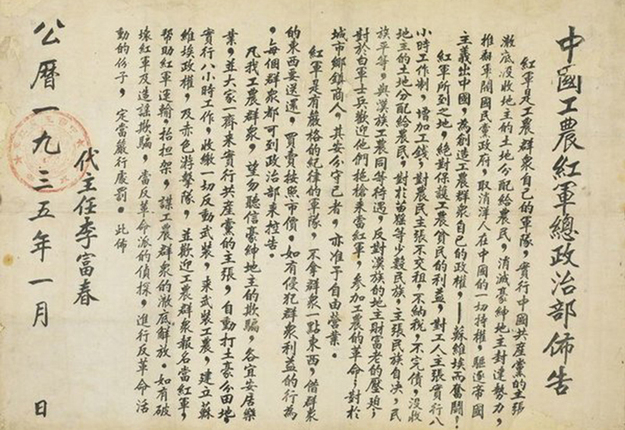 中國工農紅軍總政治部佈告
紅軍是工農群眾自己的軍隊,實行中國共產黨的主張
澈底沒收地主的土地分配給農民,消滅豪紳地主封建勢力,
推翻軍閥國民黨政府,取消洋人在中國的一切特權,驅逐帝國
主義出中國,為創造工農群眾自己的政權,——蘇維埃而奮鬥!
紅軍所到之地,絕對保護工農貧民的利益,對工人主張實行八
小時工作制,增加工錢,對農民主張不交租,不納稅,不完債,沒收
地主的土地分配給農民,對於苗猺等少數民族,主張民族自決,民
族平等,與漢族工農同等待遇,反對漢族的地主財富老的壓迫;
對於白軍士兵歡迎他們拖槍來當紅軍,參加工農的革命;對於
城市鄉鎮商人,其安分守己者,亦准予自由營業。
紅軍是有嚴格的紀律的軍隊,不拿群眾一點東西,借群眾
的東西要送還,買賣按照市價。如有侵犯群眾利益的行為
,每個群眾都可到政治部來控告。
凡我工農群眾,望勿聽信豪紳地主的欺騙,各宜安居樂
業,並大家一齊來實行共產黨的主張,自動打土豪分田地
實行八小時工作,收繳一切反動武裝,來武裝工農,建立蘇
維埃政權,及赤色游擊隊,並歡迎工農群眾報名當紅軍,
幫助紅軍運輸,抬担架,謀工農群眾的澈底解放。如有破
壞紅軍及造謠欺騙,當反革命派的偵探,進行反革命活
動的份子,定當嚴行處罰。此佈
代主任李富春
公曆一九三五年一月 日